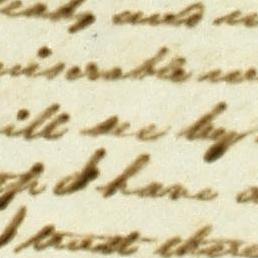 eady and
miserable
ill see by
I have
I trust there